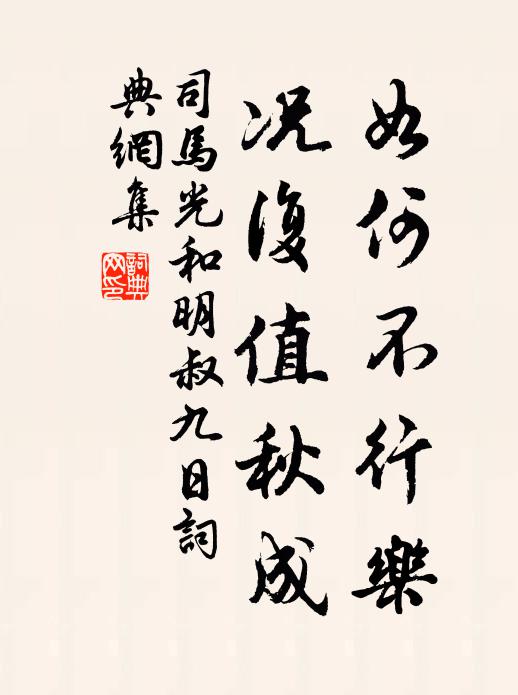 如何不行樂
況復值秋成
司馬光和明叔九日詞
典網集
詞典網印